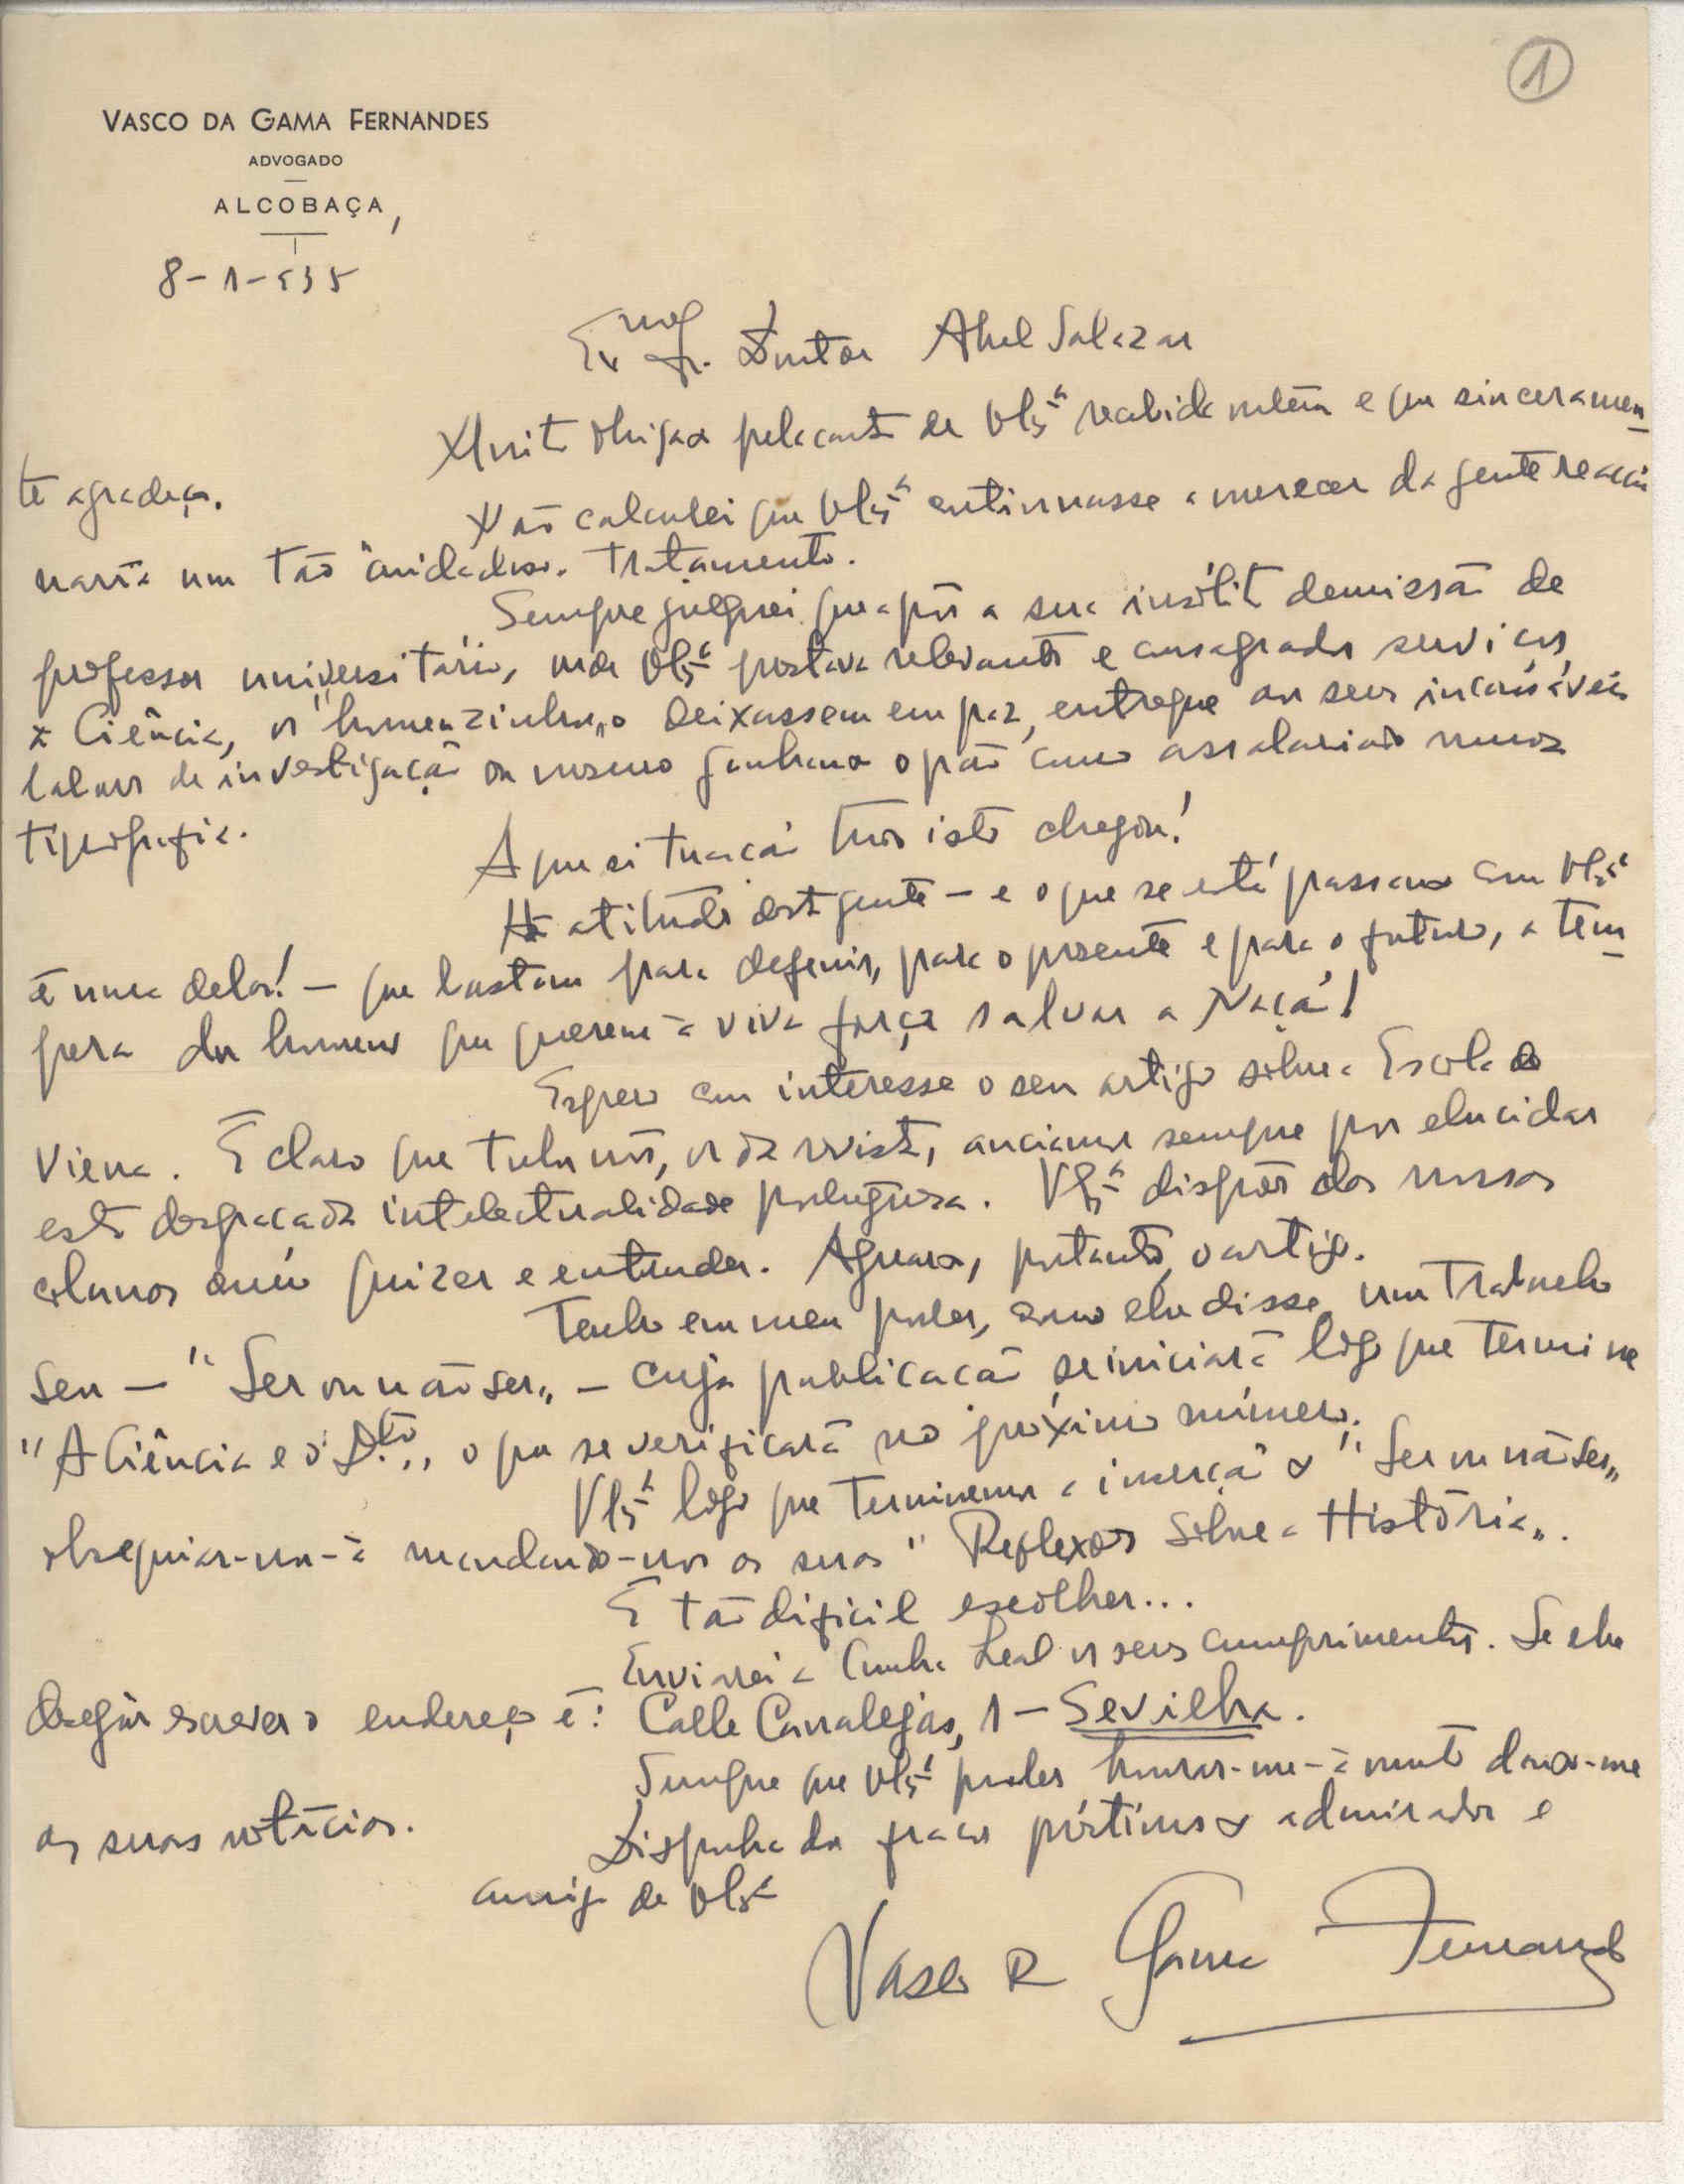 1
VASCO DA GAMA FERNANDES
ADVOGADO
ALCOBAÇA,
8-1-935
Exmo Sr. Doutor Abel Salazar
Muito obrigado pela carta de V. Exª recebida ontem e que sinceramen-
te agradeço.
Não calculei que V. Exª continuasse a merecer da gente reaccio
naria um tão "cuidadoso" tratamento.
Sempre julguei que após a sua insólita demissão de
professor universitário, onde V. Exª prestava relevantes e consagrados serviços
à Ciência, os "homenzinhos" o deixassem em paz, entregue aos seus incansáveis
labores de investigação ou mesmo ganhando o pão como assalariado numa
tipografia.
A que situação tudo isto chegou!
Há atitudes desta gente - e o que se está passando com V. Exª
é uma delas! - que bastam para definir, para o presente e para o futuro, a têm-
pera dos homens que querem à viva força salvar a Nação!
Espero com interêsse o seu artigo sôbre a Escola de
Viena. É claro que todos nós, os da revista, anciamos sempre por elucidar
esta desgraçada intelectualidade portuguesa. V. Exª dispõe das nossas
colunas como quizer e entender. Aguardo, portanto, o artigo.
Tenho em meu poder, como lhe disse, um trabalho
seu - "Ser ou não ser" - cuja publicação se iniciará logo que termine
"A Ciência e o Dto", o que se verificará no próximo número.
V. Exª logo que terminemos a inserção do "Ser ou não ser"
obsequiar-nos-á mandando-nos as suas "Reflexões sôbre a História".
É tão dificil escolher...
Enviarei a Cunha Leal os seus cumprimentos. Se lhe
desejar escrever o endereço é: Calle Canalejas, 1 - Sevilha.
Sempre que V. Exª poder honrar-me-á muito dando-me
as suas notícias.
Disponha dos fracos préstimos do admirador e
amigo de V. Exª
Vasco da Gama Fernandes